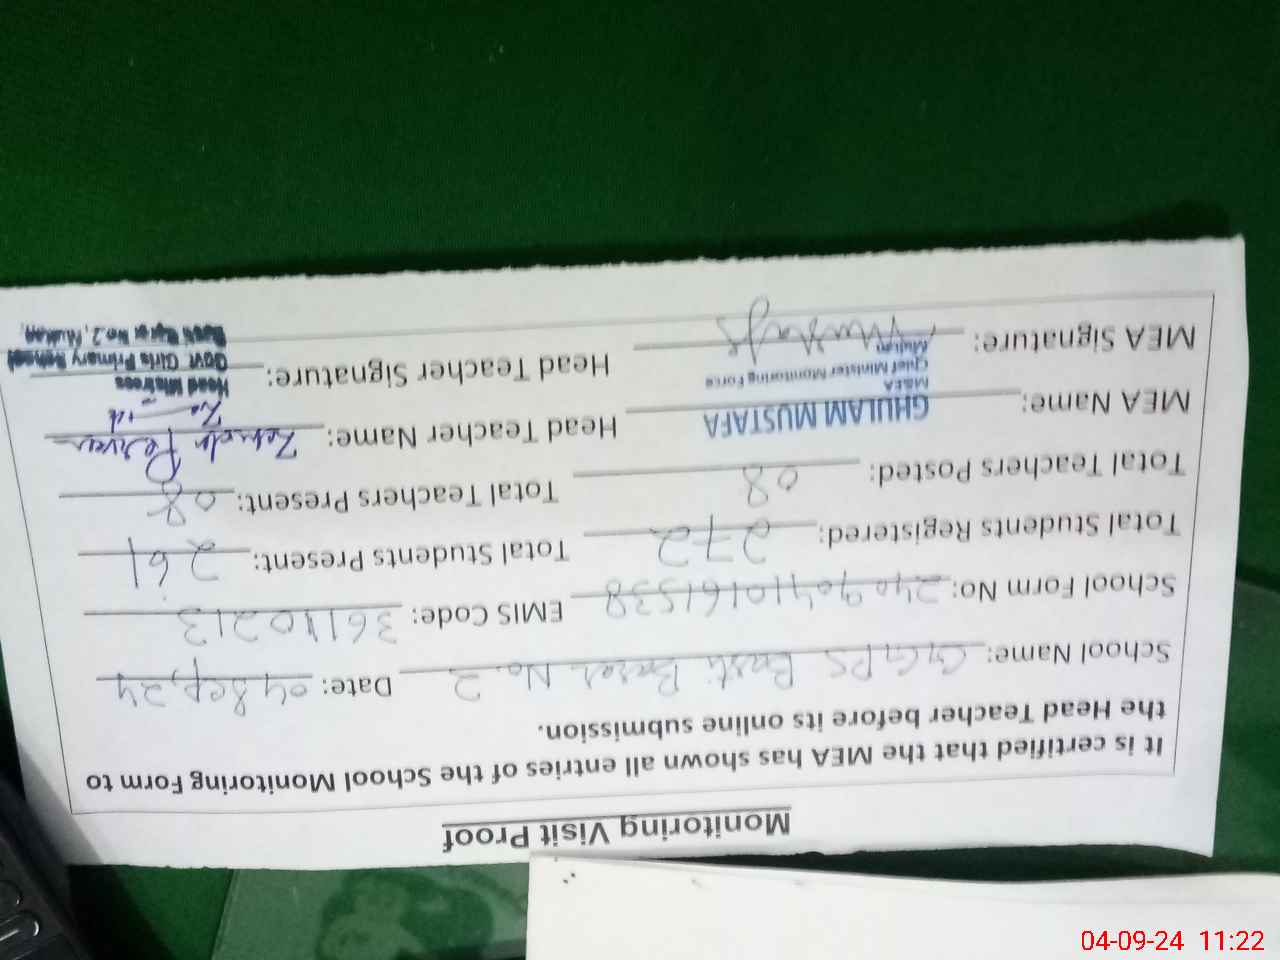 Monitoring Visit Proof
It is certified that the MEA has shown all entries of the School Monitoring Form to
the Head Teacher before its online submission.
School Name: GGPS Basti No. 2 Date: 04 Sep, 24
School Form No: EMIS Code: 36110213
Total Students Registered: 272 Total Students Present: 261
Total Teachers Posted: 08 Total Teachers Present: 08
MEA Name: GHULAM MUSTAFA Head Teacher Name: Perveen
M&EA
Chief Minister Monitoring Force
Multan
MEA Signature: Mustafa Head Teacher Signature:
Head Mistress
Govt Girls Primary School
Basti No.2, Multan
04-09-24 11:22